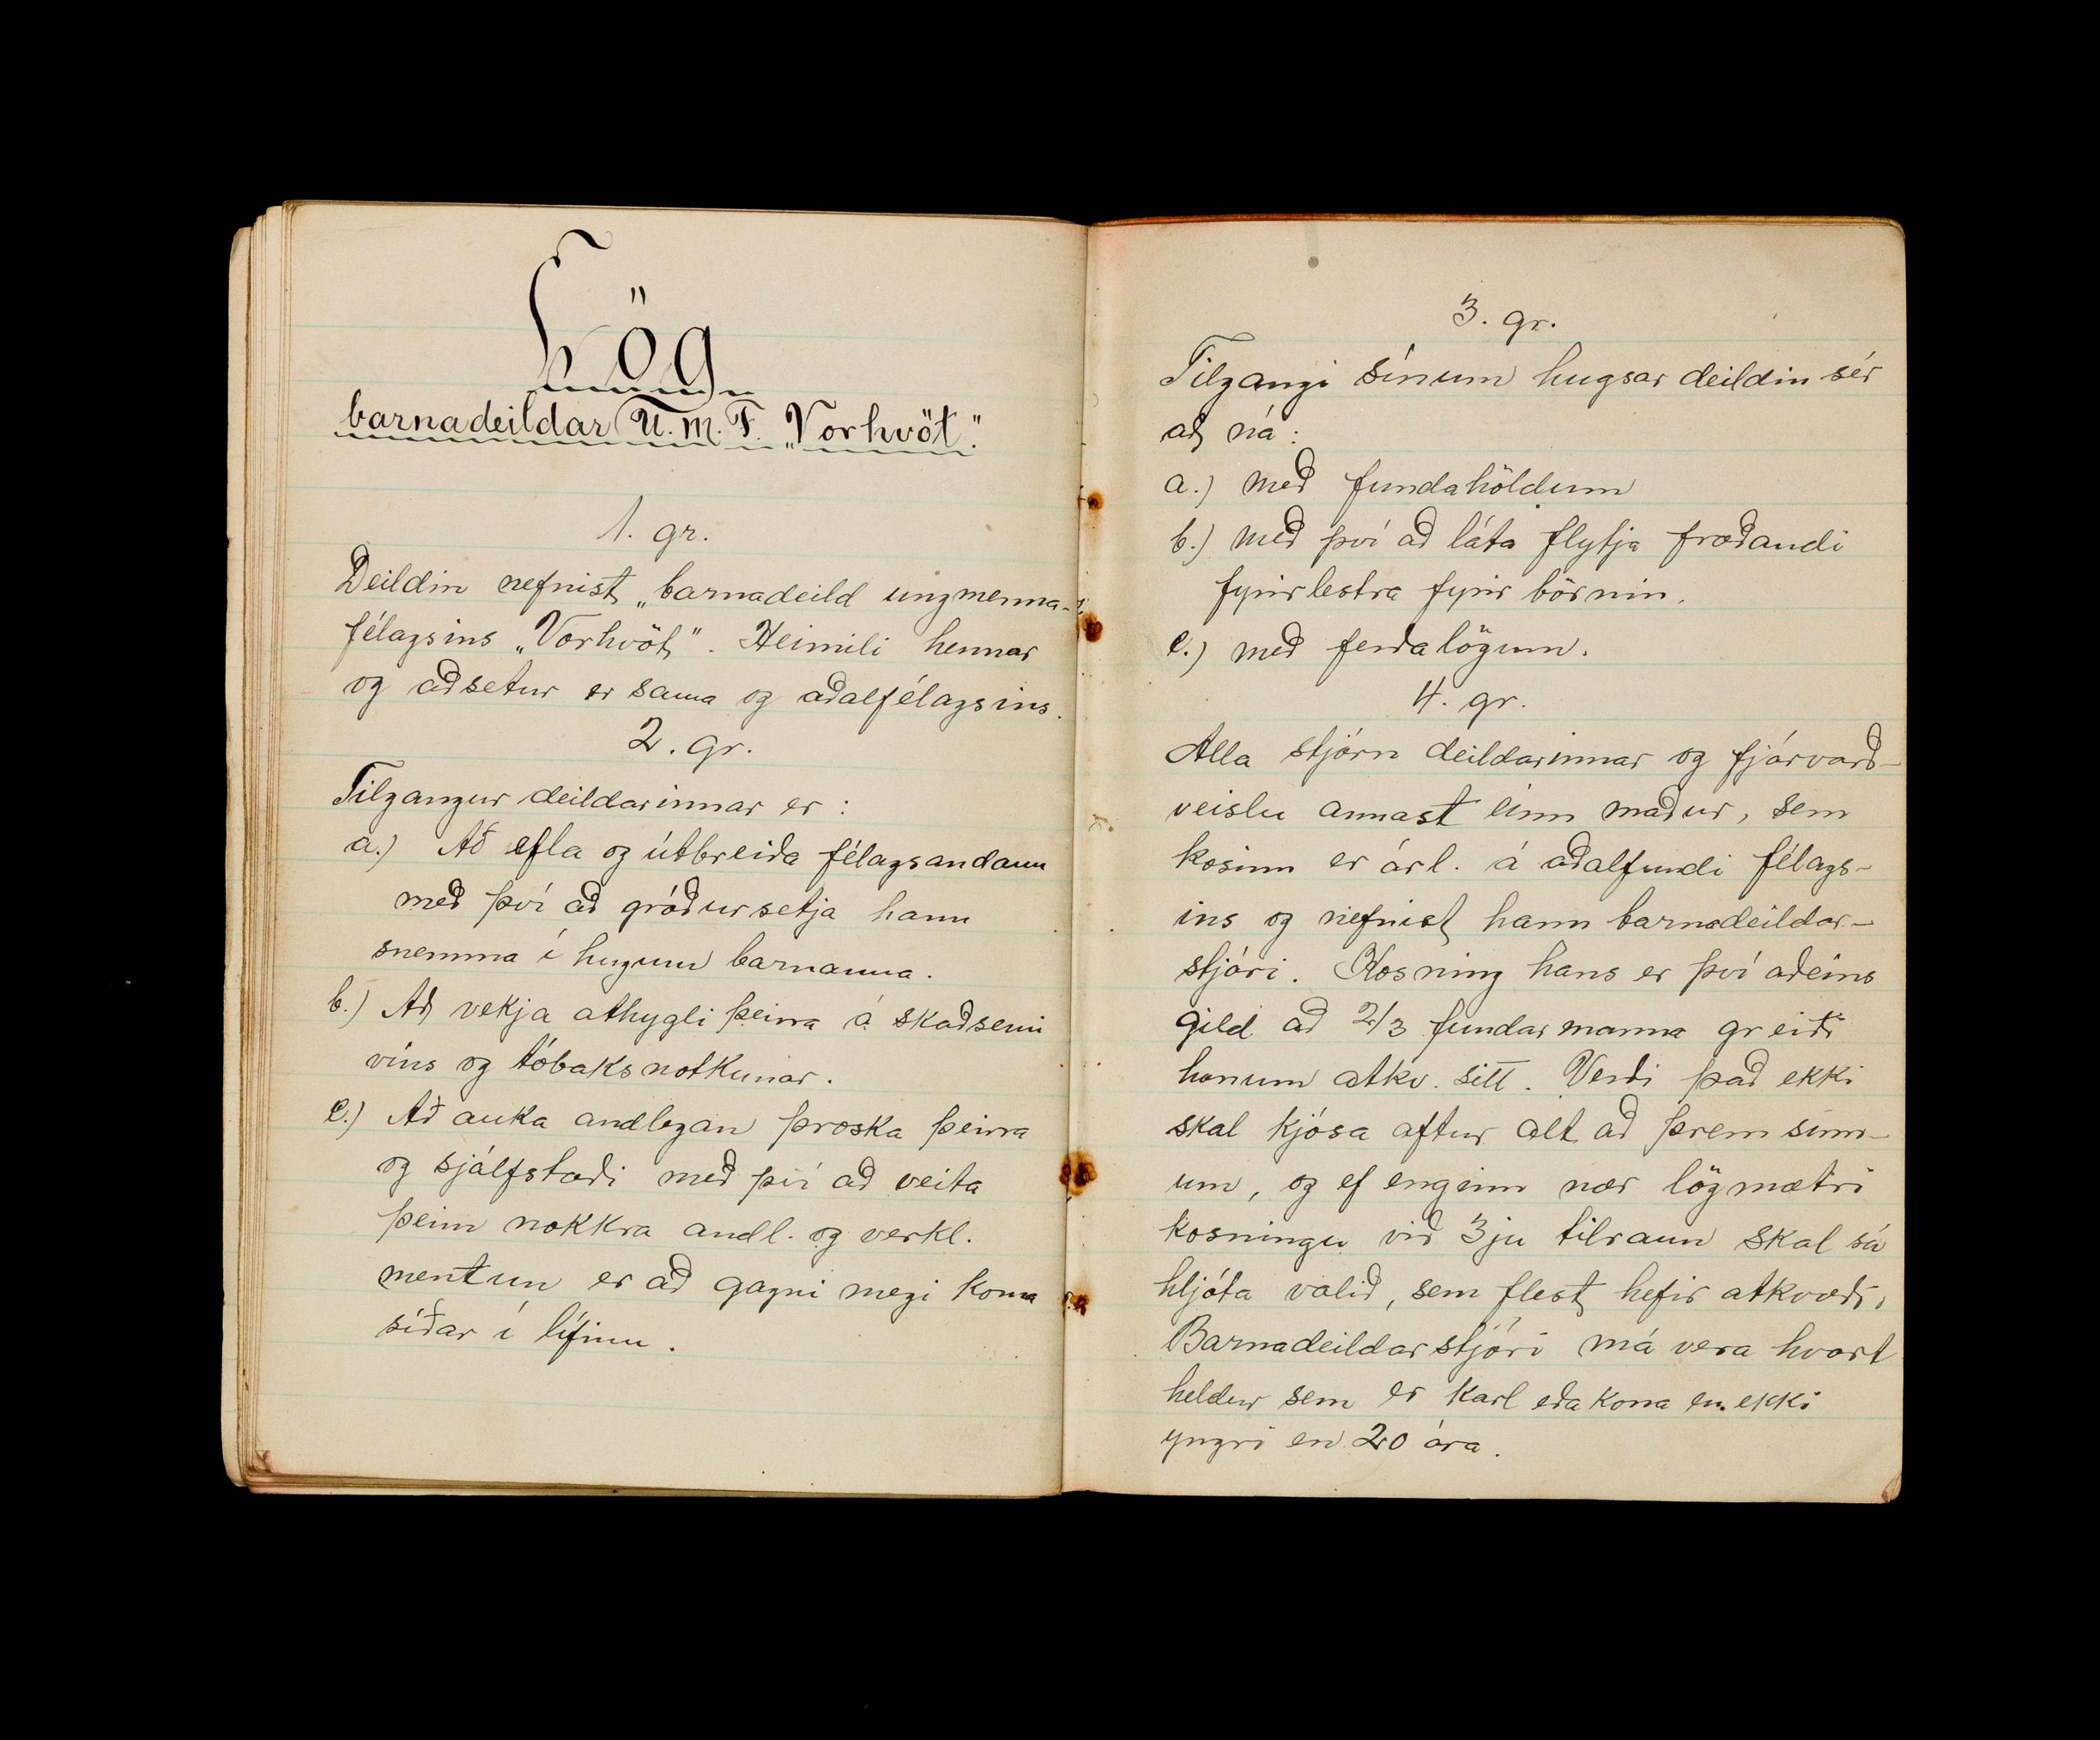 Lög
barnadeildar U.M.F. „Vorhvöt."
1. gr.
Deildin nefnist „barnadeild ungmenna-
félagsins „Vorhvöt". Heimili hennar
og aðsetur er sama og aðalfélagsins.
2. gr.
Tilgangur deildarinnar er:
a.) Að efla og útbreiða félagsandann
með því að gróðursetja hann
snemma í hugum barnanna.
b.) Að vekja athygli þeirra á skaðsemi
víns og tóbaksnotkunar.
c.) Að auka andlegan þroska þeirra
og sjálfstæði með því að veita
þeim nokkra andl. og verkl.
mentun er að gagni megi koma
síðar í lífinu.
3. gr.
Tilgangi sínum hugsar deildin sér
að ná:
a.) með fundahöldum
b.) með því að láta flytja fræðandi
fyrirlestra fyrir börnin.
c.) með ferðalögum.
4. gr.
Alla stjórn deildarinnar og fjárvarð-
veislu annast einn maður, sem
kosinn er árl. á aðalfundi félags-
ins og nefnist hann barnadeildar-
stjóri. Kosning hans er því aðeins
gild að 2/3 fundarmanna greiði
honum atkv. sitt. Verði það ekki
skal kjósa aftur alt að þrem sinn-
um, og ef enginn nær lögmætri
kosningu við 3ju tilraun skal sá
hljóta valið, sem flest hefir atkvæði,
Barnadeildarstjóri má vera hvort
heldur sem er karl eða kona en ekki
yngri en 20 ára.